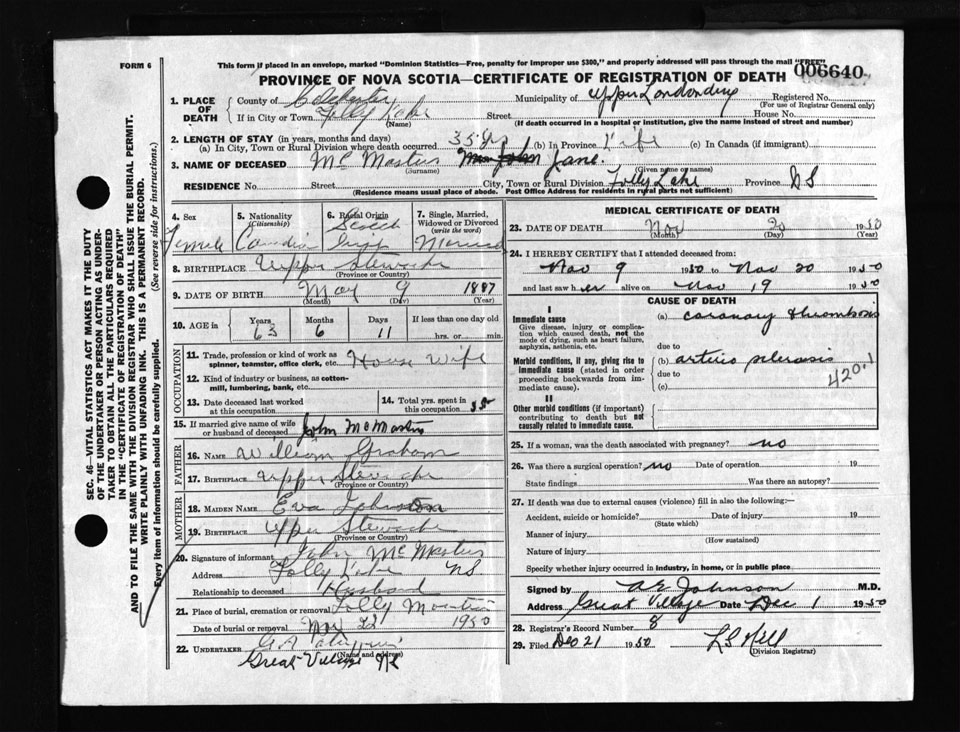 FORM 6
This form if placed in an envelope, marked "Dominion Statistics—Free, penalty for improper use $300," and properly addressed will pass through the mail "FREE"
PROVINCE OF NOVA SCOTIA—CERTIFICATE OF REGISTRATION OF DEATH
006640
1. PLACE OF DEATH
County of Colchester
Municipality of Upper Londonderry
Registered No.
(For use of Registrar General only)
If in City or Town Folly Lake
(Name)
Street
House No.
(If death occurred in a hospital or institution, give the name instead of street and number)
2. LENGTH OF STAY (in years, months and days)
(a) In City, Town or Rural Division where death occurred 35 Yrs (b) In Province Life (c) In Canada (if immigrant)
3. NAME OF DECEASED McMaster Mrs John Jane.
(Surname) (Given name or names)
RESIDENCE No. Street City, Town or Rural Division Folly Lake Province NS
(Residence means usual place of abode. Post Office Address for residents in rural parts not sufficient)
4. Sex
Female
5. Nationality
(Citizenship)
Canadian
6. Racial Origin
Scotch
7. Single, Married, Widowed or Divorced
(write the word)
Married
8. BIRTHPLACE Upper Stewiacke
(Province or Country)
9. DATE OF BIRTH May 9 1887
(Month) (Day) (Year)
10. AGE in
Years Months Days If less than one day old
63 6 11 hrs. or min.
OCCUPATION
11. Trade, profession or kind of work as spinner, teamster, office clerk, etc. House Wife
12. Kind of industry or business, as cotton-mill, lumbering, bank, etc.
13. Date deceased last worked at this occupation
14. Total yrs. spent in this occupation 35
15. If married give name of wife or husband of deceased John McMaster
FATHER
16. NAME William Graham
17. BIRTHPLACE Upper Stewiacke
(Province or Country)
MOTHER
18. MAIDEN NAME Eva Johnston
19. BIRTHPLACE Upper Stewiacke
(Province or Country)
20. Signature of informant John McMaster
Address Folly Lake NS
Relationship to deceased Husband
21. Place of burial, cremation or removal Folly Mountain
Date of burial or removal Nov 22 1950
22. UNDERTAKER
(Name and address)
Great Village NS
MEDICAL CERTIFICATE OF DEATH
23. DATE OF DEATH Nov 20 1950
(Month) (Day) (Year)
24. I HEREBY CERTIFY that I attended deceased from:
Nov 9 1950 to Nov 20 1950
and last saw her alive on Nov 19 1950
CAUSE OF DEATH
I
Immediate cause
Give disease, injury or complication which caused death, not the mode of dying, such as heart failure, asphyxia, asthenia, etc.
(a) coronary thrombosis
due to
Morbid conditions, if any, giving rise to immediate cause (stated in order proceeding backwards from immediate cause).
(b) arterio sclerosis
due to
(c)
420.1
II
Other morbid conditions (if important) contributing to death but not causally related to immediate cause.
25. If a woman, was the death associated with pregnancy? no
26. Was there a surgical operation? no Date of operation 19
State findings Was there an autopsy?
27. If death was due to external causes (violence) fill in also the following:—
Accident, suicide or homicide? Date of injury 19
(State which)
Manner of injury
(How sustained)
Nature of injury
Specify whether injury occurred in industry, in home, or in public place
Signed by A E Johnson M.D.
Address Great Village Date Dec 1 1950
28. Registrar's Record Number 8
29. Filed Dec 21 1950 L S Hill
(Division Registrar)
SEC. 46—VITAL STATISTICS ACT MAKES IT THE DUTY
OF THE UNDERTAKER OR PERSON ACTING AS UNDER-
TAKER TO OBTAIN ALL THE PARTICULARS REQUIRED
IN THE "CERTIFICATE OF REGISTRATION OF DEATH"
AND TO FILE THE SAME WITH THE DIVISION REGISTRAR WHO SHALL ISSUE THE BURIAL PERMIT.
WRITE PLAINLY WITH UNFADING INK. THIS IS A PERMANENT RECORD.
Every item of information should be carefully supplied. (See reverse side for instructions.)